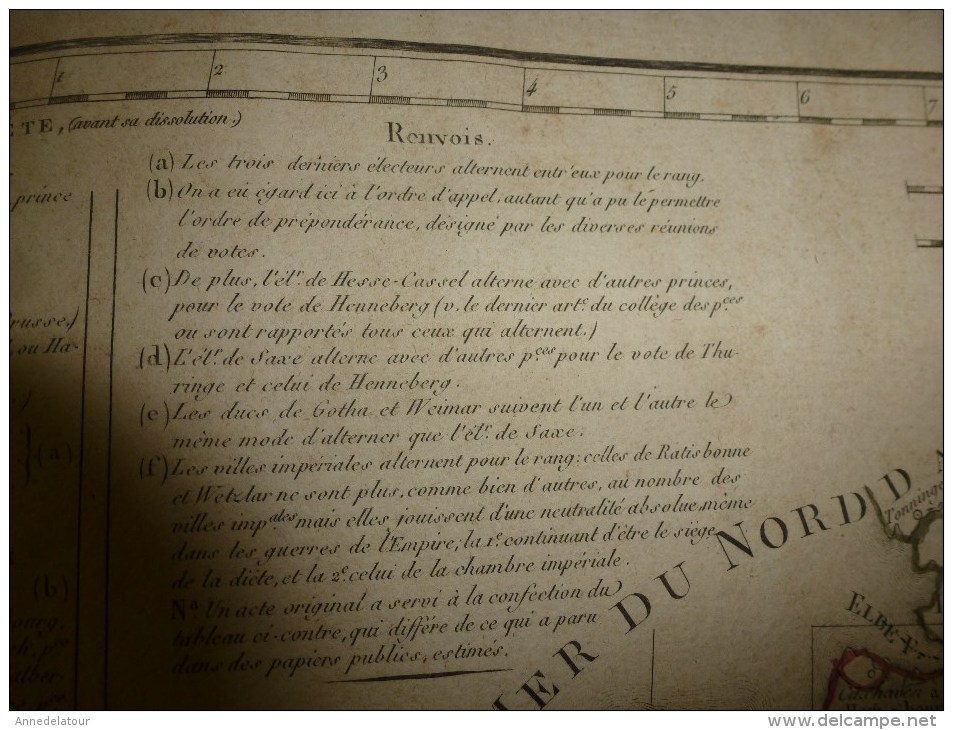 1 2 3 4 5 6 7
ETE, (avant sa dissolution.)
Renvois.
(a) Les trois derniers électeurs alternent entr'eux pour le rang.
(b) On a eû égard ici à l'ordre d'appel, autant qu'a pu le permettre
l'ordre de prépondérance, désigné par les diverses réunions
de votes.
(c) De plus, l'él.r de Hesse-Cassel alterne avec d'autres princes,
pour le vote de Henneberg (v. le dernier art.e du collège des p.ces
ou sont rapportés tous ceux qui alternent.)
(d) L'él.r de Saxe alterne avec d'autres p.ces pour le vote de Thu-
ringe et celui de Henneberg.
(e) Les ducs de Gotha et Weimar suivent l'un et l'autre le
même mode d'alterner que l'él.r de Saxe.
(f) Les villes impériales alternent pour le rang: celles de Ratisbonne
et Wetzlar ne sont plus, comme bien d'autres, au nombre des
villes imp.ales mais elles jouissent d'une neutralité absolue, même
dans les guerres de l'Empire; la 1.e continuant d'être le siège
de la diète, et la 2.e celui de la chambre impériale.
N.a Un acte original a servi à la confection du
tableau ci-contre, qui différe de ce qui a paru
dans des papiers publics, estimés.
prince
russes)
ou Ha-
(a)
(b)
ourg,
MER DU NORD
Tonningen
ELBE F.
Cuxhaven
Annedelatour
http://www.delcampe.net